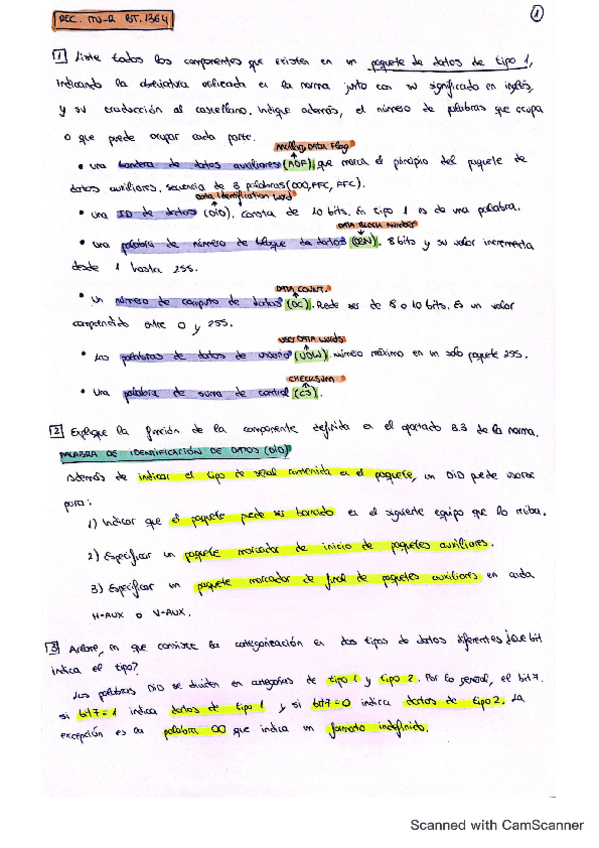 REC. ITU-R BT.1364
1
1 Liste todos los componentes que existen en un paquete de datos de tipo 1,
indicando la abreviatura utilizada en la norma junto con su significado en inglés,
y su traducción al castellano. Indique además, el número de palabras que ocupa
o que puede ocupar cada parte.
Ancillary DATA Flag
• una bandera de datos auxiliares (ADF) que marca el principio del paquete de
datos auxiliares, secuencia de 3 palabras (000, FFC, FFC).
Data Identification word
• una ID de datos (DID). Consta de 10 bits. En tipo 1 es de una palabra.
DATA BLOCK number
• una palabra de número de bloque de datos (DBN). 8 bits y su valor incrementa
desde 1 hasta 255.
DATA COUNT.
• un número de computo de datos (DC). Puede ser de 8 o 10 bits. Es un valor
comprendido entre 0 y 255.
USER DATA WORDS
• Las palabras de datos de usuario (UDW) número máximo en un solo paquete 255.
CHECKSUM
• una palabra de suma de control (CS)
2 Explique la función de la componente definida en el apartado 3.3 de la norma.
PALABRA DE IDENTIFICACIÓN DE DATOS (DID)
Además de indicar el tipo de señal contenida en el paquete, un DID puede usarse
para:
1) Indicar que el paquete puede ser borrado en el siguiente equipo que lo reciba.
2) Especificar un paquete marcador de inicio de paquetes auxiliares.
3) Especificar un paquete marcador de final de paquetes auxiliares en cada
H-AUX o V-AUX.
3 Aclare, en que consiste la categorización en dos tipos de datos diferentes ¿que bit
indica el tipo?
Las palabras DID se dividen en categorías de tipo 1 y tipo 2. Por lo general, el bit 7.
si bit7=1 indica datos de tipo 1 y si bit7=0 indica datos de tipo 2. La
excepción es la palabra 00 que indica un formato indefinido.
Scanned with CamScanner